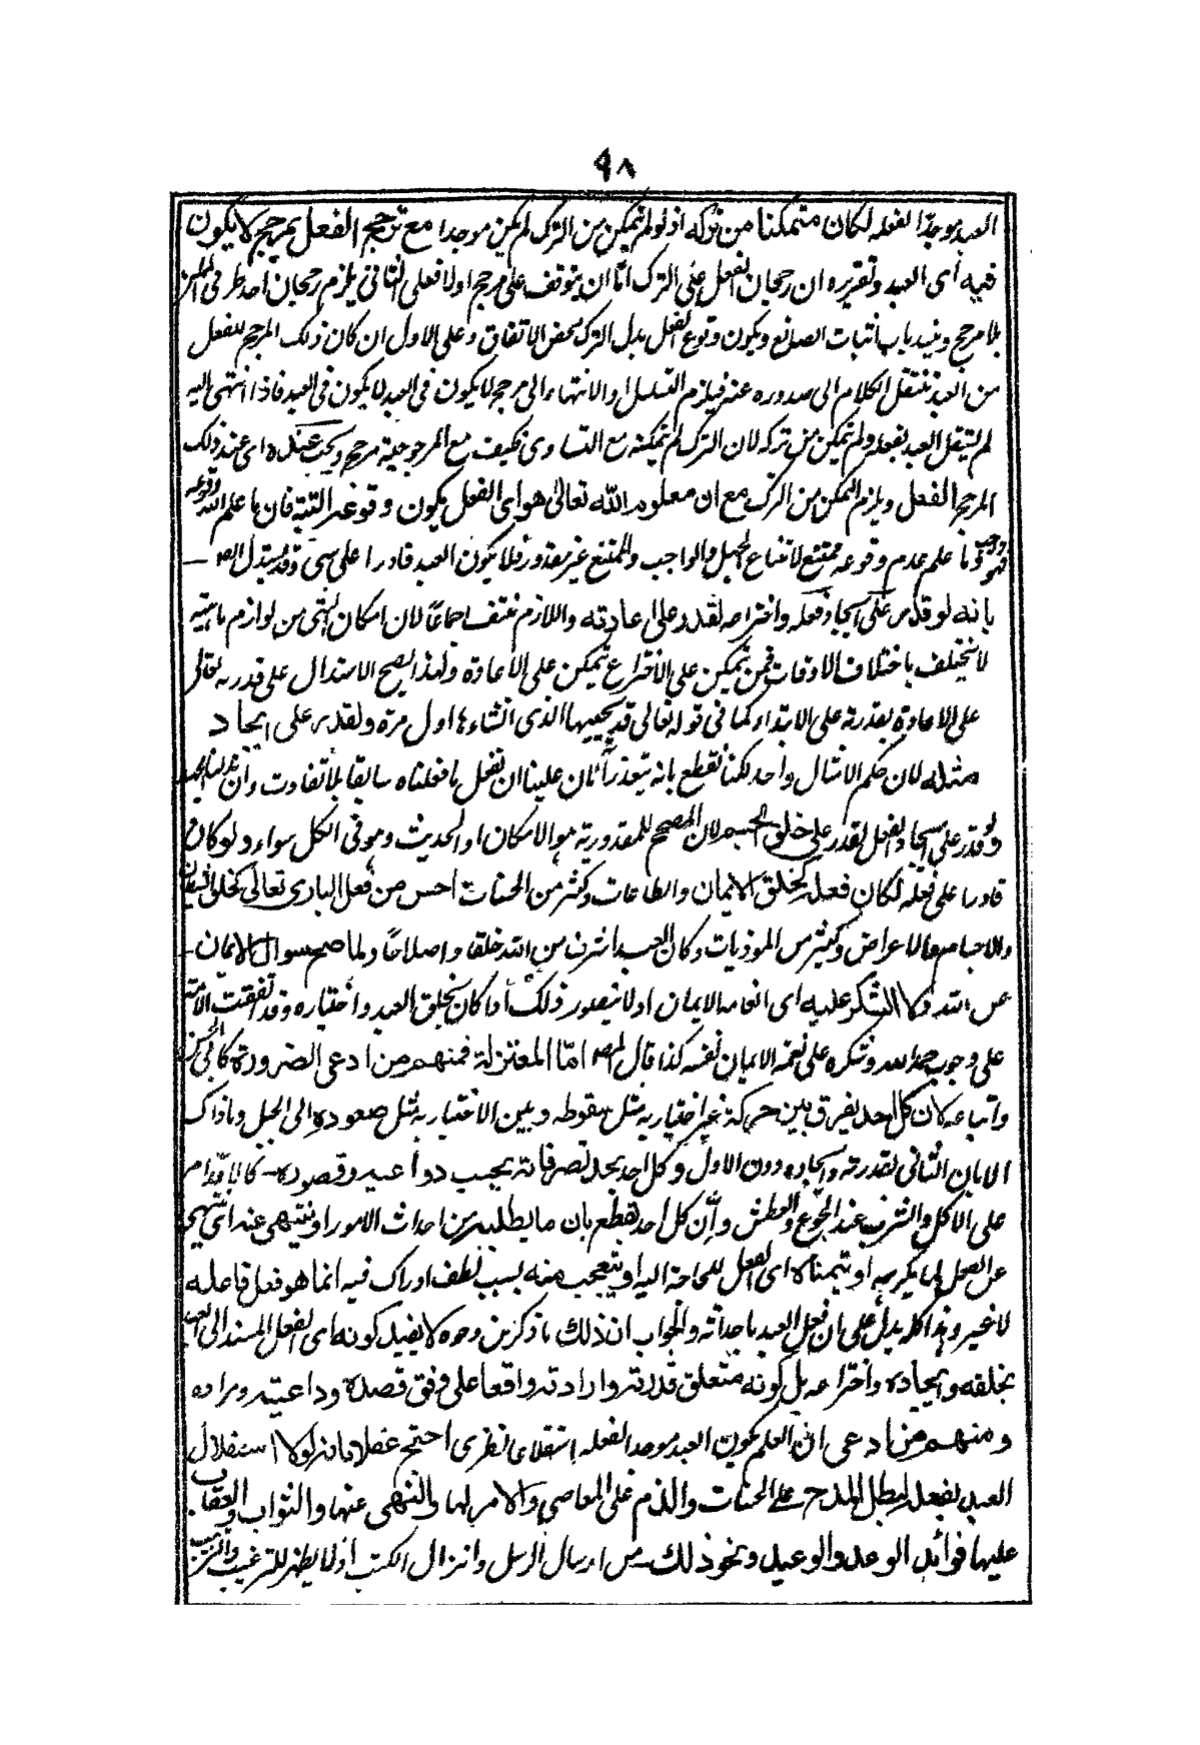 ٩٨
العبد موجدا لفعله لكان متمكنا من تركه اذ لو لم يتمكن من الترك لم يكن موجدا مع ترجح الفعل بمرجح لا يكون
فيه أى العبد وتقريره ان رجحان الفعل على الترك اما ان يتوقف على مرجح اولا فعلى الثانى يلزم رجحان احد طرفى
بلا مرجح وينسد باب اثبات الصانع ويكون وقوع الفعل بدل الترك محض الاتفاق وعلى الاول ان كان ذلك المرجح للفعل
من العبد ننقل الكلام الى صدوره عنه فيلزم التسلسل او الانتهاء الى مرجح لا يكون فى العبد لا يكون فى العبد فاذا انتهى اليه
لم يستقل العبد بفعله ولم يتمكن من تركه لان الترك لم يمكنه مع التساوى فكيف مع المرجوحية مرجح ويجب عنده اى عند ذلك
المرجح الفعل ويلزم التمكن من الترك مع ان معلوم الله تعالى هو اى الفعل يكون وقوعه البتة فان ما علم الله وقوعه
فهو واجب وما علم عدم وقوعه ممتنع لامتناع الجهل والواجب والممتنع غير مقدور فلا يكون العبد قادرا على شى وقد يستدل
بانه لو قدر على ايجاد فعله واختراعه لقدر على اعادته واللازم منتف اجماعا لان امكان الشى من لوازم ماهيته
لا يختلف باختلاف الاوقات فمن يتمكن على الاختراع يتمكن على الاعادة ولهذا يصح الاستدلال على قدرته تعالى
على الاعادة بقدرته على الابتداء كما فى قوله تعالى قل يحييها الذى انشاءها اول مرة ولقدر على ايجاد
مثله لان حكم الامثال واحد لكنا نقطع بانه يتعذر الآن علينا ان نفعل ما فعلناه سابقا بلا تفاوت وان
ولو قدر على ايجاد الفعل لقدر على خلق الجسم لان المصحح للمقدورية هو الامكان او الحدوث وهو فى الكل سواء ولو كان
قادرا على فعله لكان فعله كخلق الايمان والطاعات وكثير من الحسنات احسن من فعل البارى تعالى كخلق الشيطان
والاجسام والاعراض وكثير من الموذيات وكان العبد اشرف من الله خلقا واصلاحا ولما صح سوال الايمان
من الله ولا الشكر عليه اى انعامه الايمان اذ لا يتصور ذلك اذا كان بخلق العبد واختياره وقد اتفقت الامة
على وجوب حمد الله وشكره على نعمة الايمان نفسه كذا قال المص اما المعتزلة فمنهم من ادعى الضرورة كابى الحسين
واتباعه كان كل احد يفرق بين حركة غير اختيارية مثل سقوطه وبين الاختيارية مثل صعوده الى الجبل وما ذاك
الا بان الثانى بقدرته وايجاده دون الاول وكل احد يجد تصرفاته بحسب دواعيه وقصوده كالاقدام
على الاكل والشرب عند الجوع والعطش وأن كل احد يقطع بان ما يطلبه من احداث الامور او ينتهى عنه اى ينهى
عن الفعل لما يكرهه او يتمناه اى الفعل للحاجة اليه او يتعجب منه بسبب لطف ادراك فيه انما هو فعل فاعله
لا غير وهذا كله يدل على ان فعل العبد باحداثه والجواب ان ذلك ما ذكر من وجوه لا يفيد كونه اى الفعل المسند الى العبد
بخلقه وايجاده واختراعه بل كونه متعلق قدرته وارادته واقعا على وفق قصده وداعيته ومراده
ومنهم من ادعى ان العلم بكون العبد موجد الفعله استقلالا نظرى احتج عقلا بانه لولا استقلال
العبد بفعله لبطل المدح على الحسنات والذم على المعاصى والامر لها والنهى عنها والثواب والعقاب
عليها فوائد الوعد والوعيد ونحو ذلك من ارسال الرسل وانزال الكتب اذ لا يظهر للترغيب والترهيب